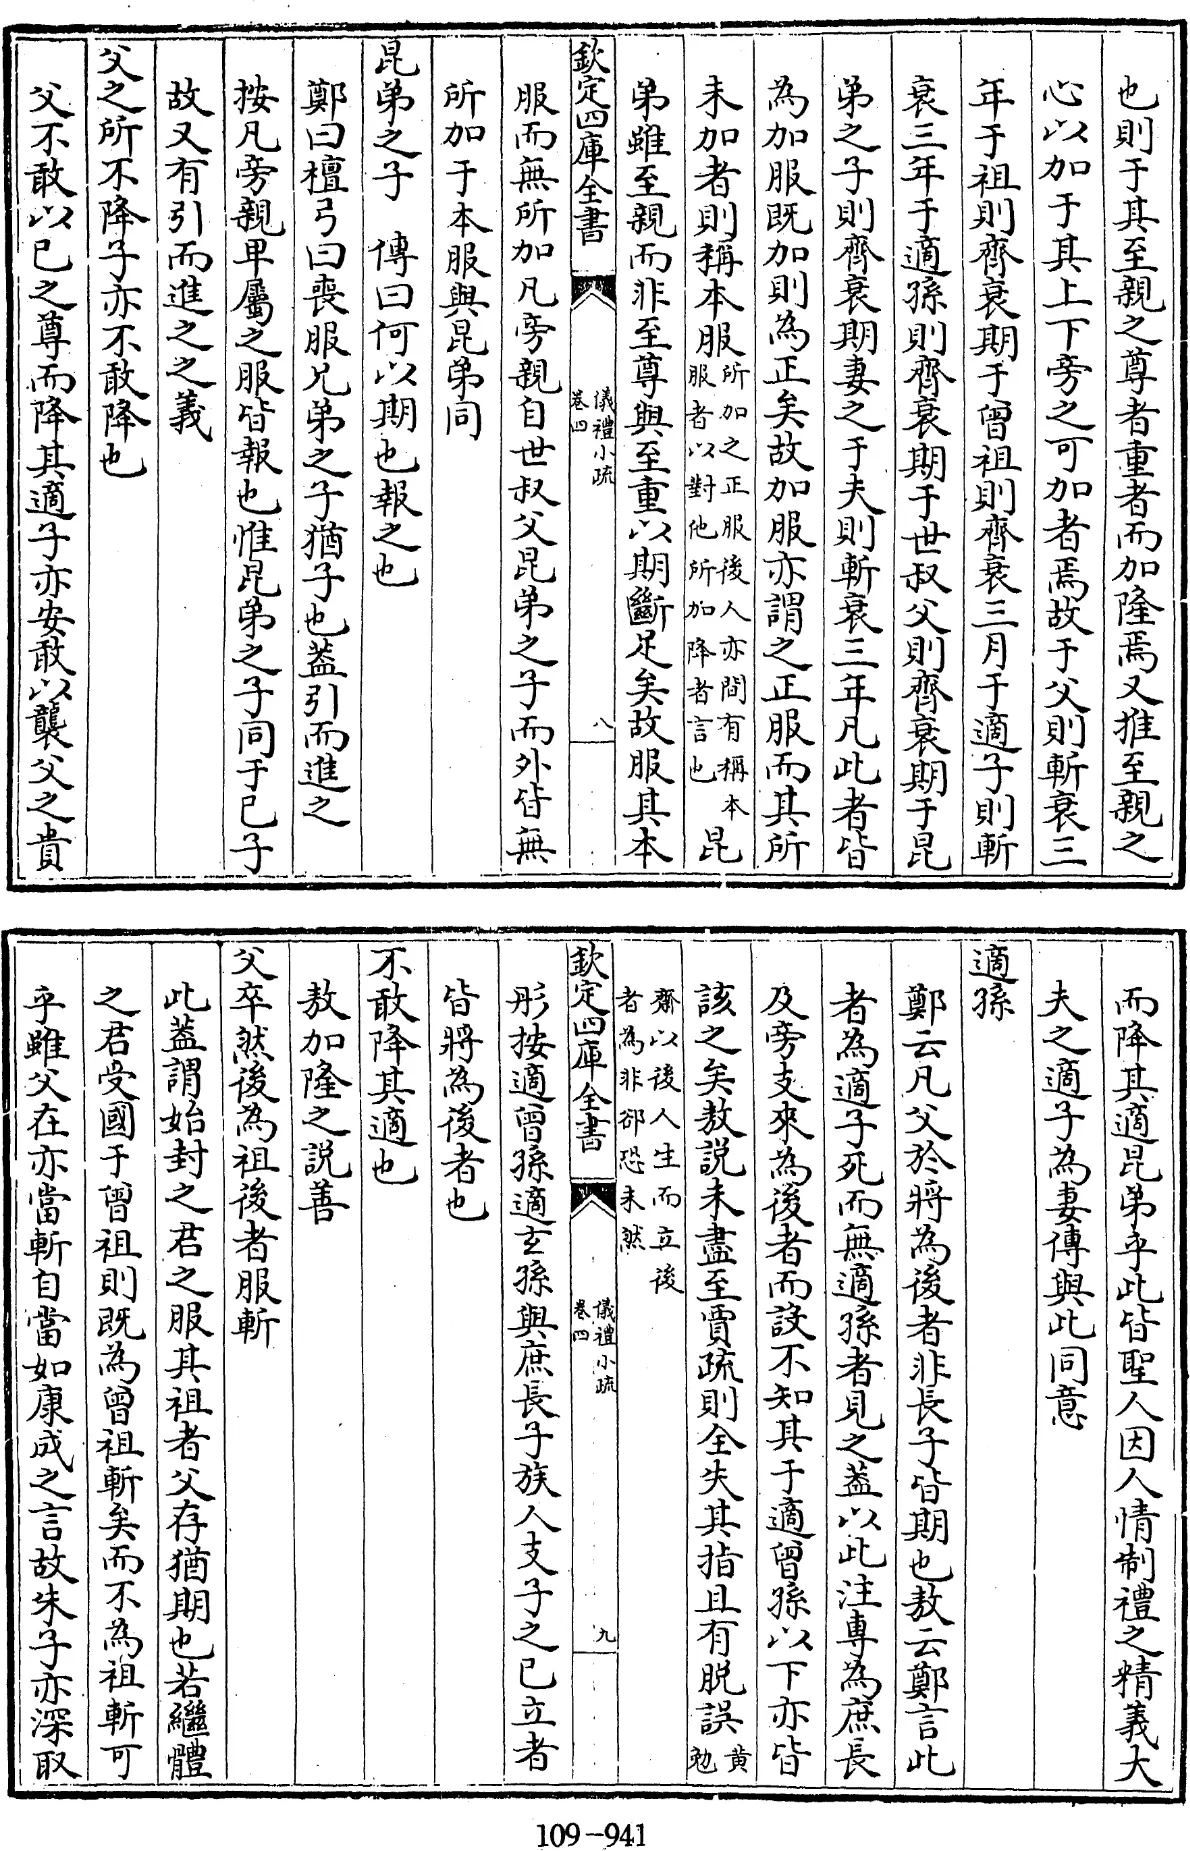 也則于其至親之尊者重者而加隆焉又推至親之
心以加于其上下旁之可加者焉故于父則斬衰三
年于祖則齊衰期于曾祖則齊衰三月于適子則斬
衰三年于適孫則齊衰期于世叔父則齊衰期于昆
弟之子則齊衰期妻之于夫則斬衰三年凡此者皆
為加服既加則為正矣故加服亦謂之正服而其所
未加者則稱本服所加之正服後人亦間有稱本服者以對他所加降者言也昆
弟雖至親而非至尊與至重以期斷足矣故服其本
欽定四庫全書
儀禮小疏
卷四
八
服而無所加凡旁親自世叔父昆弟之子而外皆無
所加于本服與昆弟同
昆弟之子 傳曰何以期也報之也
鄭曰檀弓曰喪服兄弟之子猶子也蓋引而進之
按凡旁親卑屬之服皆報也惟昆弟之子同于已子
故又有引而進之之義
父之所不降子亦不敢降也
父不敢以已之尊而降其適子亦安敢以襲父之貴
而降其適昆弟乎此皆聖人因人情制禮之精義大
夫之適子為妻傳與此同意
適孫
鄭云凡父於將為後者非長子皆期也敖云鄭言此
者為適子死而無適孫者見之蓋以此注專為庶長
及旁支來為後者而設不知其于適曾孫以下亦皆
該之矣敖說未盡至賈疏則全失其指且有脫誤黃勉
齋以後人生而立後者為非卻恐未然
欽定四庫全書
儀禮小疏
卷四
九
彤按適曾孫適玄孫與庶長子族人支子之已立者
皆將為後者也
不敢降其適也
敖加隆之說善
父卒然後為祖後者服斬
此蓋謂始封之君之服其祖者父存猶期也若繼體
之君受國于曾祖則既為曾祖斬矣而不為祖斬可
乎雖父在亦當斬自當如康成之言故朱子亦深取
109-941